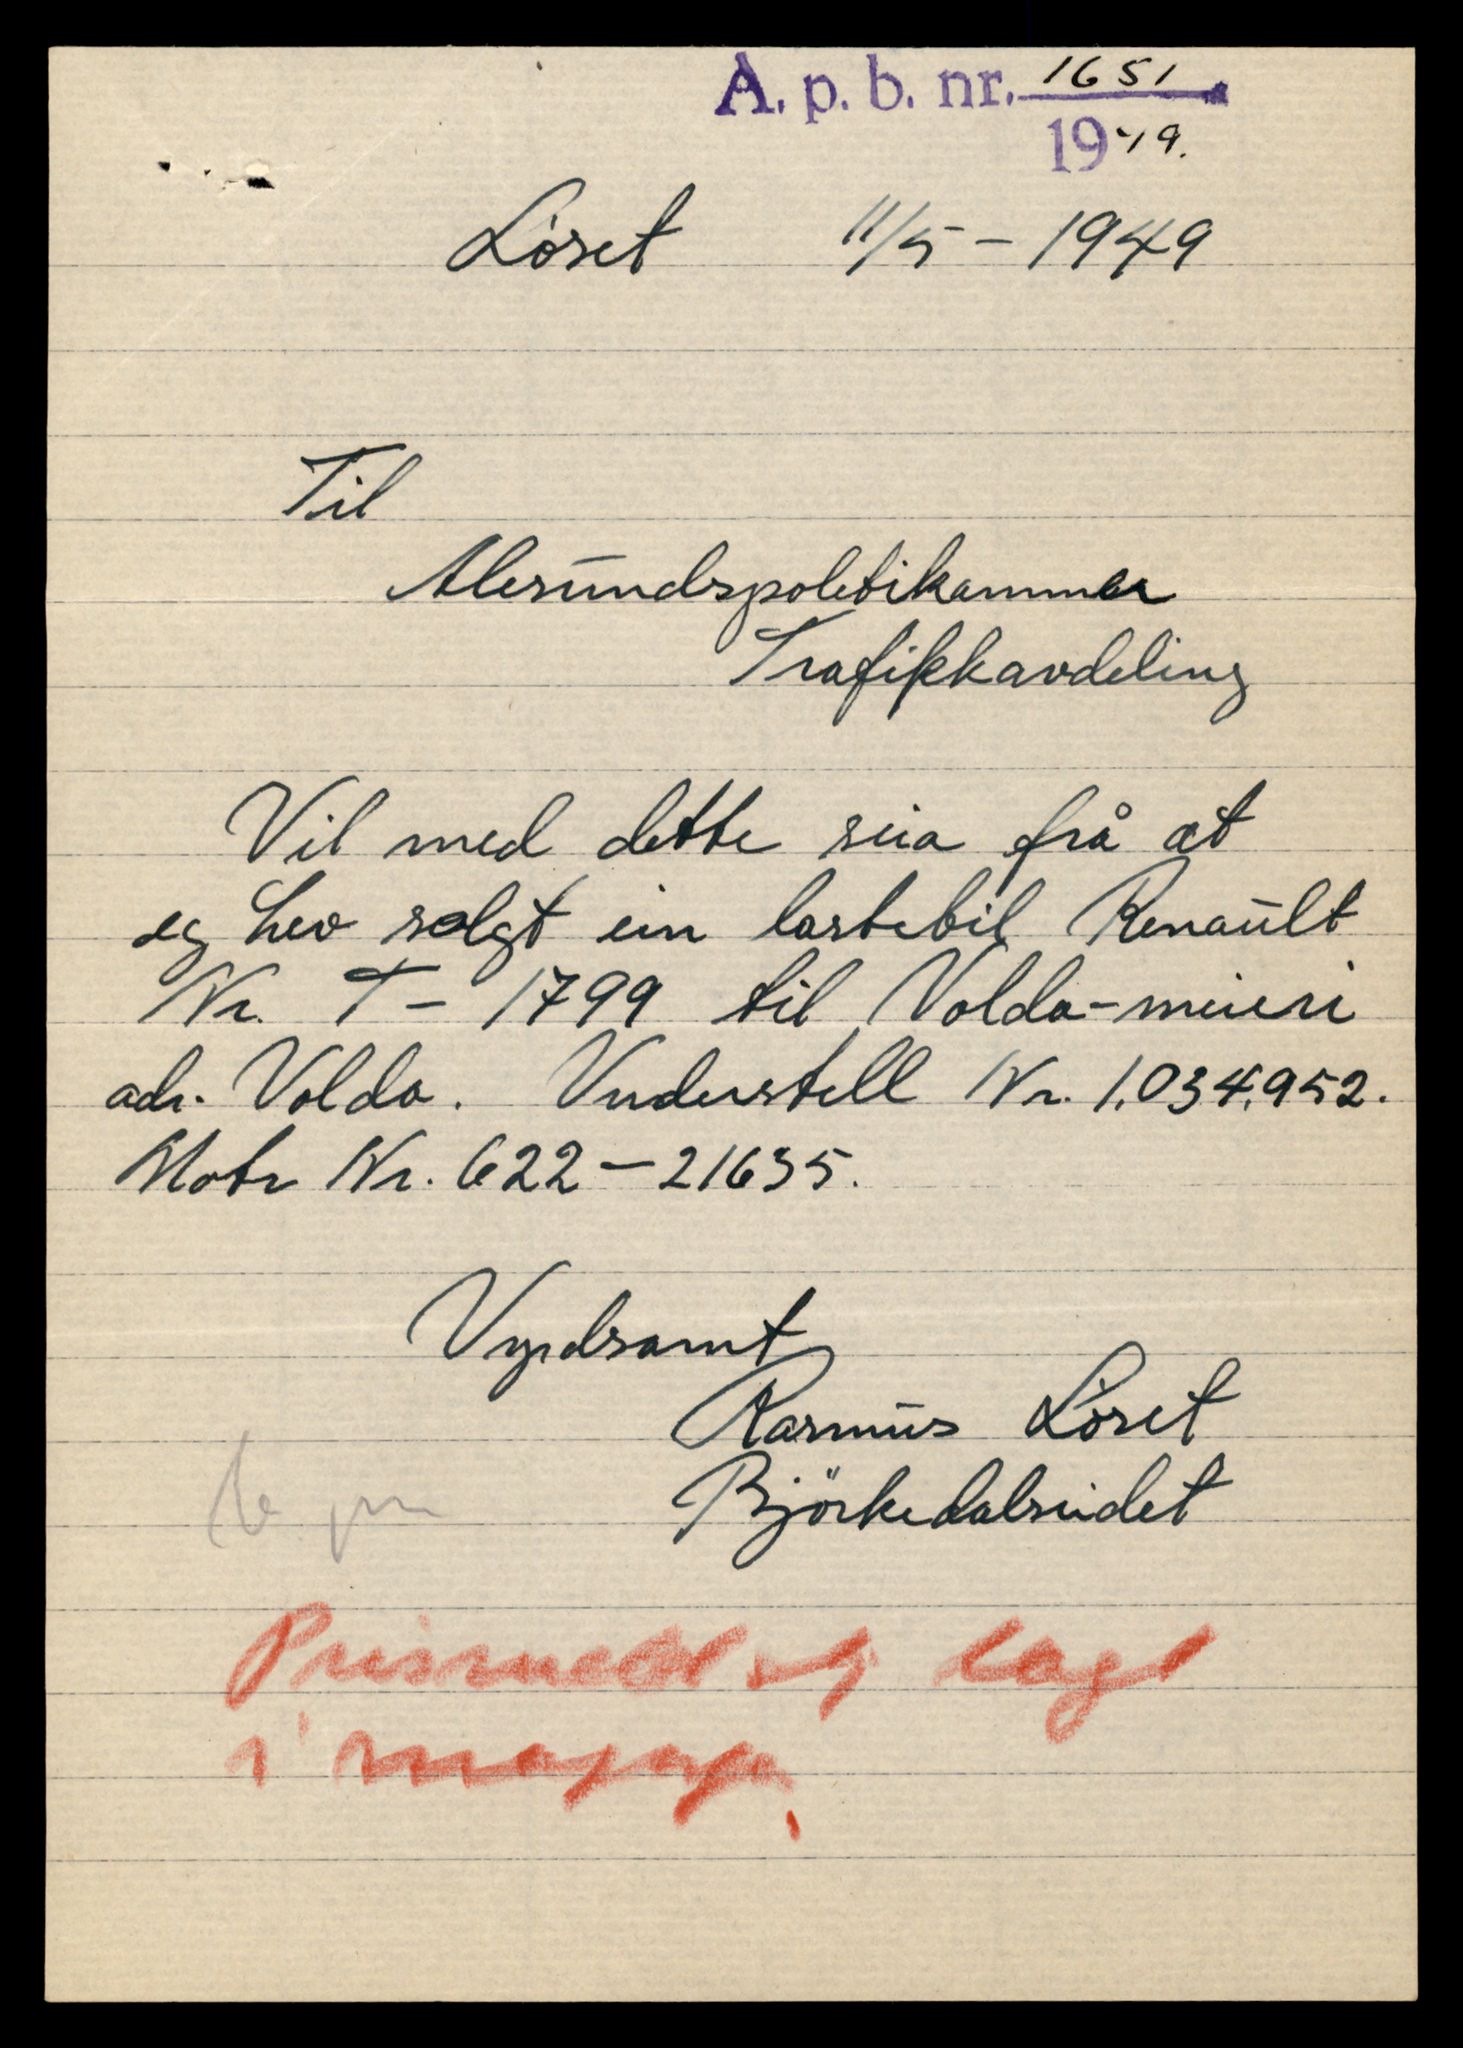 A. p. b. nr. 1651
1949.
Löset 11/5 - 1949
Til
Alesundspolitikammer
Trafikkavdeling
Vil med dette seia frå at
eg hev selgt ein lastebil Renault
Nr. T - 1799 til Volda-meieri
adr. Volda. Understell Nr. 1.034.952.
Motr Nr. 622 - 21635.
Vyrdsamt
Rasmus Löset
Björkedalseidet
Prismedd og lagt
i mappa.